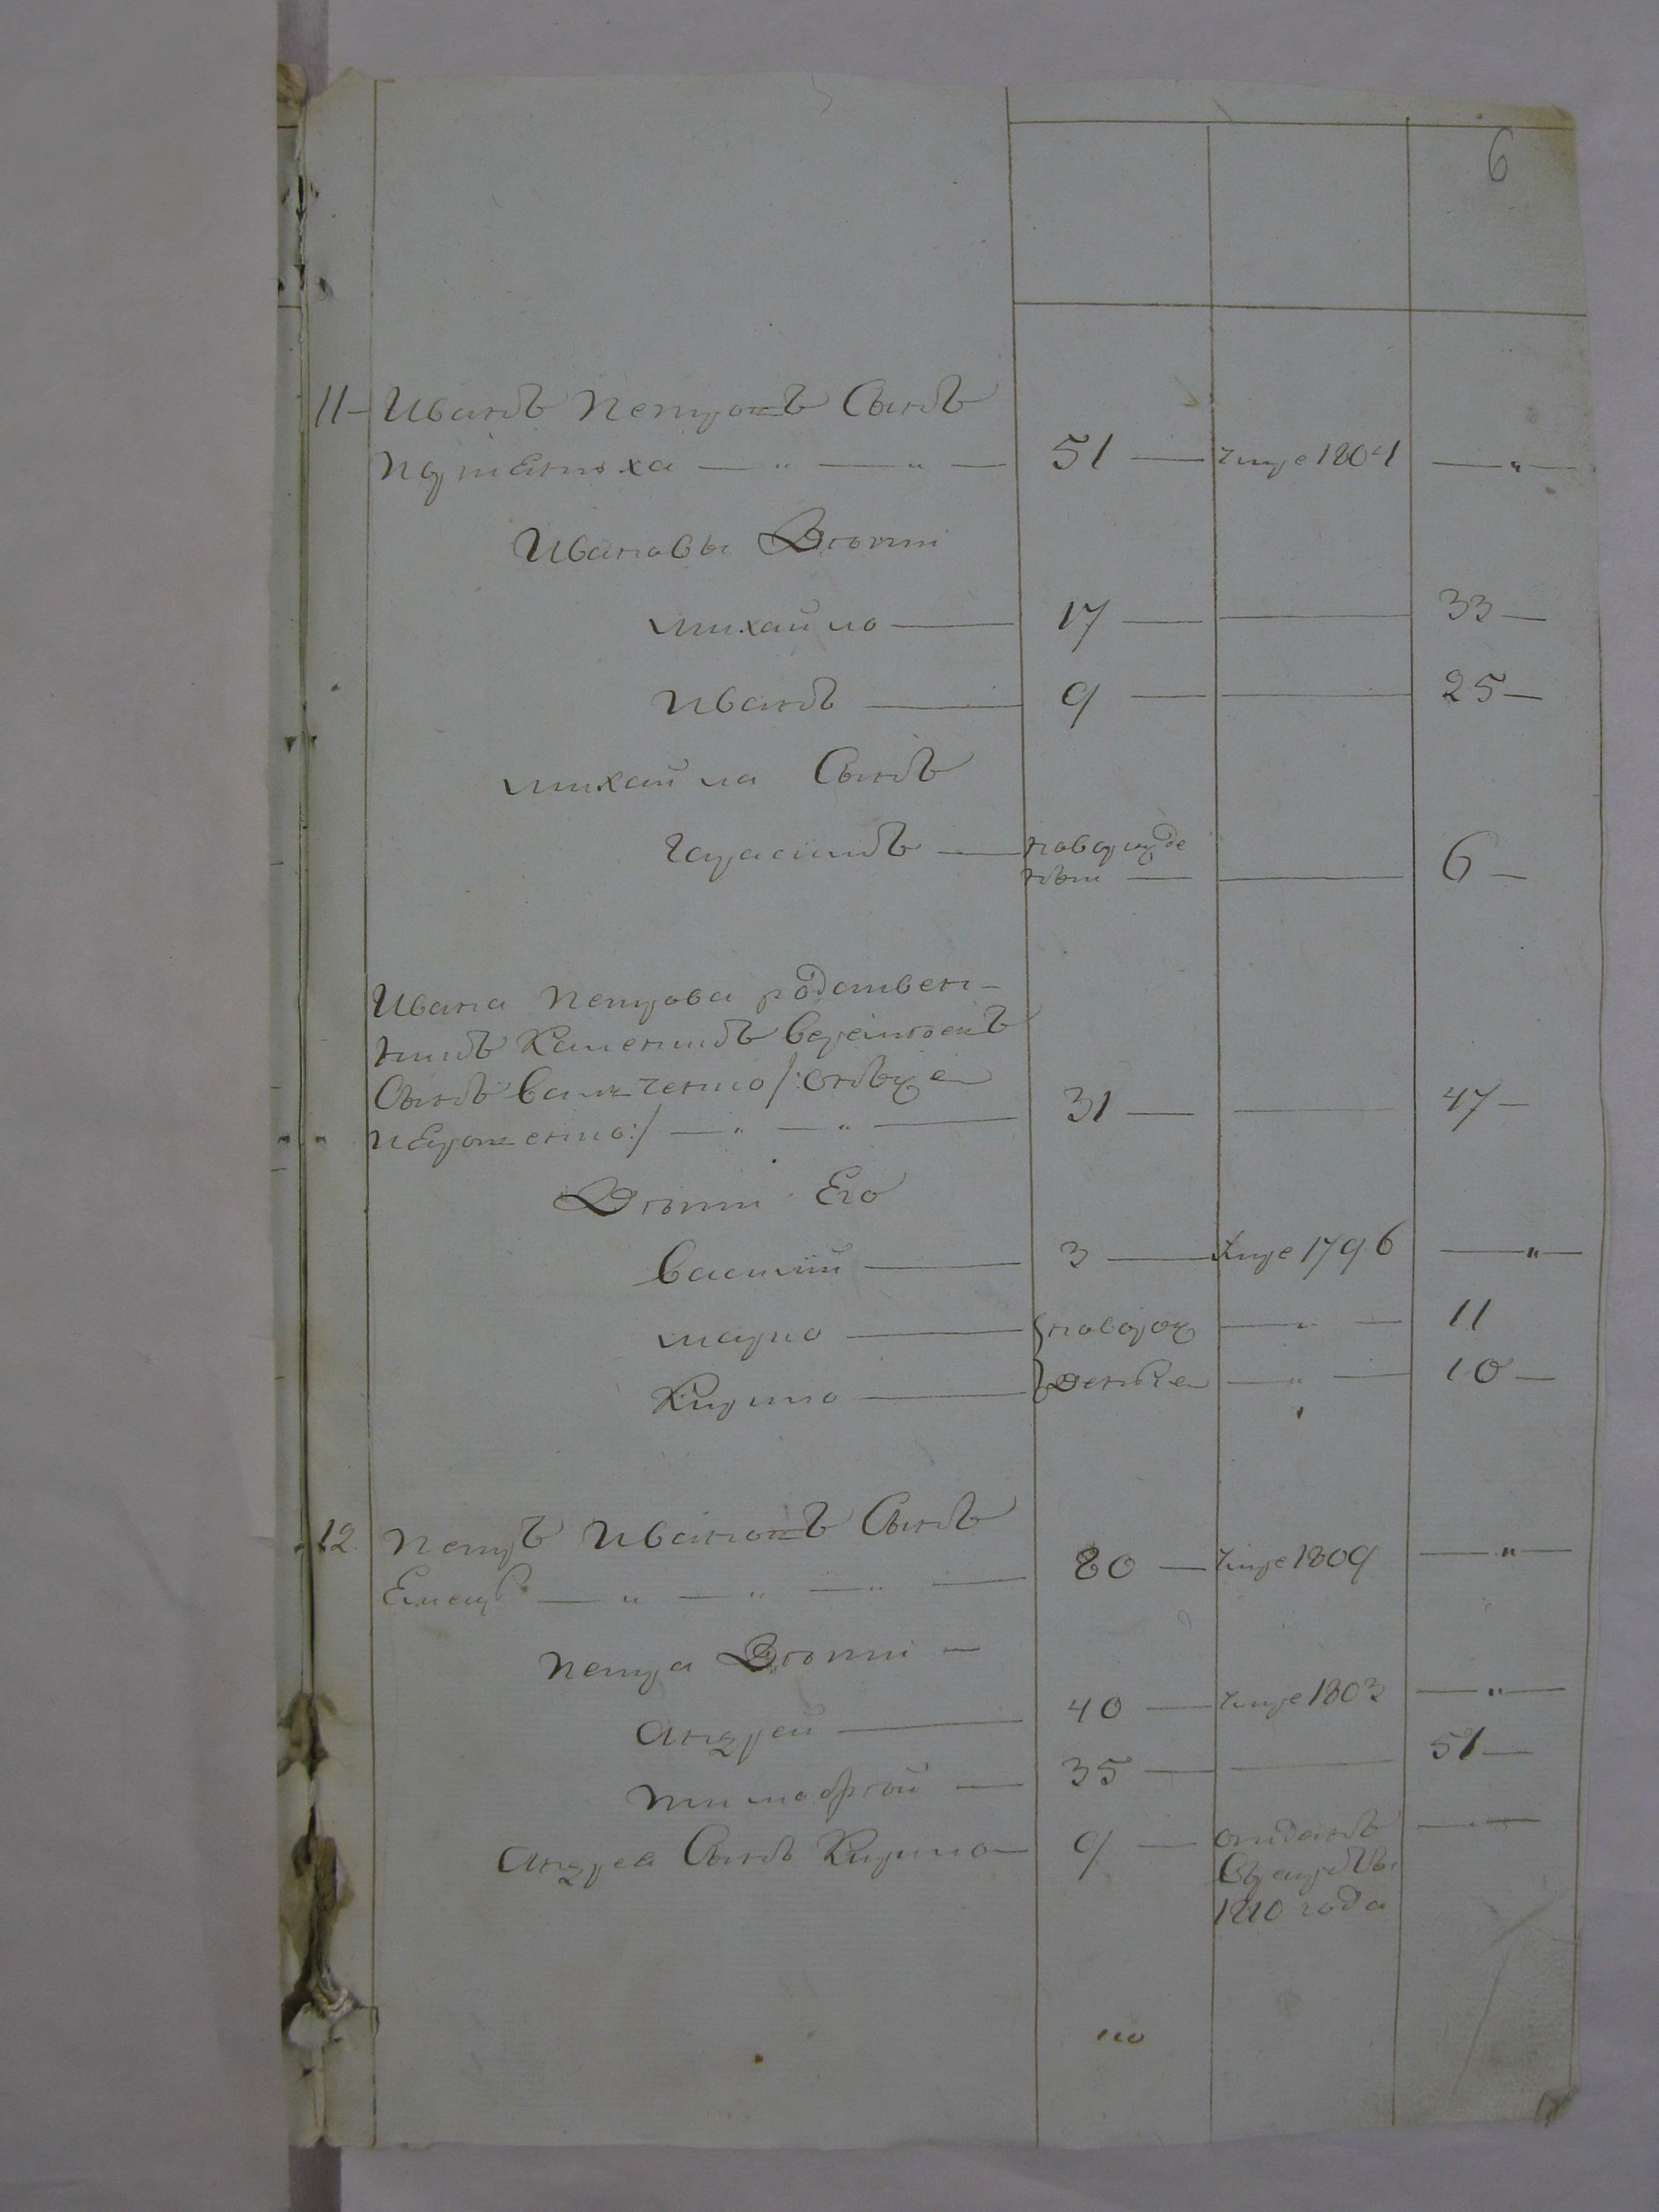 6
11 — Иванъ Петровъ Сынъ
— " — " — 51 — умре 1804 — " —
Ивановы Дѣти
Михайло — 17 — — 33 —
Иванъ — 9 — — 25 —
Михайла Сынъ
Герасимъ — новорожде
нъи — — 6 —
Ивана Петрова родствен-
никъ Климентий
Сынъ /: онъже
:/ — " — " — 31 — — 47 —
Дѣти Его
Василій — 3 — умре 1796 — " —
Марко — новорож — " — 11
Кирило — денъіе — " — 10 —
12. Петръ Ивановъ Сынъ
— " — " — " — 80 — умре 1809 — " —
Петра Дѣти —
Андрей — 40 — умре 1803 — " —
Тимофѣй — 35 — — 51 —
Андрея Сынъ Кирило — 9 — отданъ —
Врекруты
1810 года